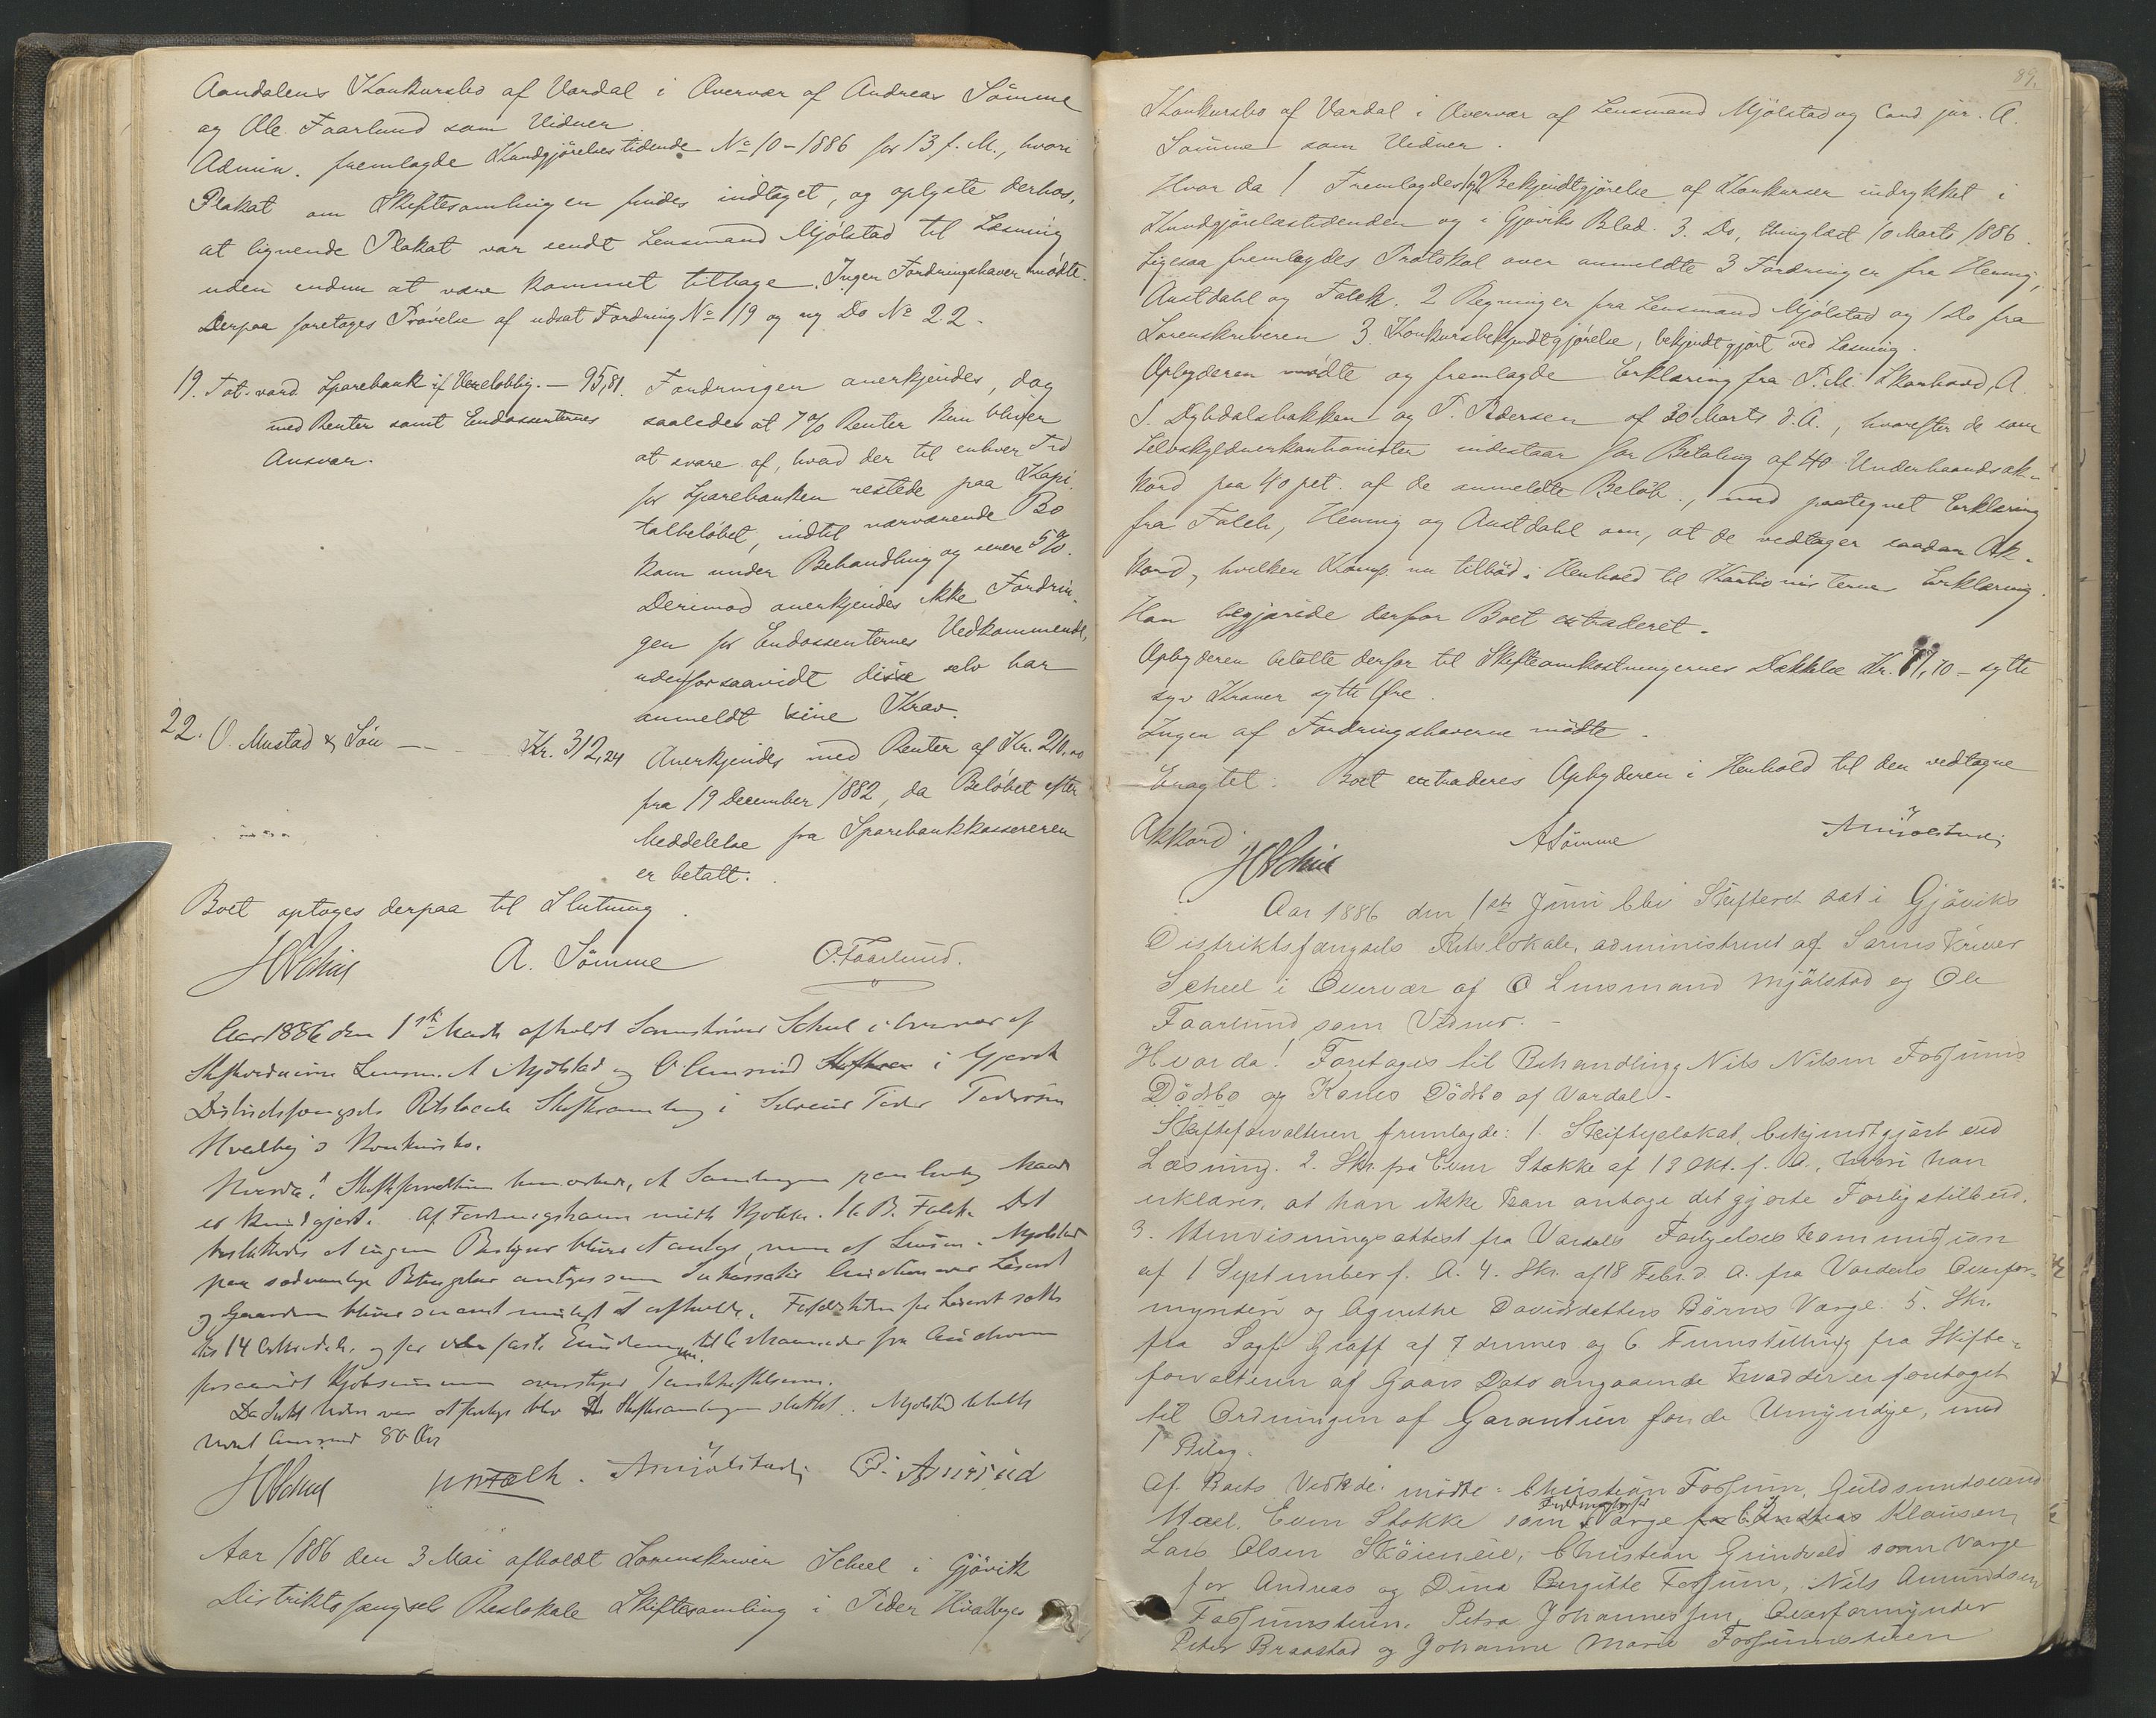 Aandalens Konkursbo af Vardal i Overvær af Andreas Sömme
og Ole Faarlund som Vidner
Admin. fremlagde Kundgjörelsestidende No 10-1886 for 13 f. M., hvori
Plakat om Skiftesamlingen findes indtaget, og oplyste derhos,
at lignende Plakat var sendt Lensmand Mjölstad til Læsning
uden endnu at være kommet tilbage. Ingen Fordringshaver mødte.
Derpaa foretages Prøvelse af udsat Fordring No 19 og ny Do No 22-
19. Tot. vard. Sparebank if Vexelobblig. — 95,81.
med Renter samt Endossenternes
Ansvar.
Fordringen anerkjendes, dog
saaledes at 7% Renter kun bliver
at svare af, hvad der til enhver Tid
for Sparebanken restede paa Kapi-
talbeløbet, indtil nærværende Bo
kom under Behandling og senere 5%.
Derimod anerkjendes ikke Fordrin-
gen for Endossenternes Vedkommende,
udenfor saavidt disse selv har
anmeldt sine Krav.
22. O. Mustad & Sön — Kr. 312,24
Anerkjendes med Renter af Kr. 210,00
fra 19 December 1882, da Beløbet efter
Meddelelse fra Sparebankkassereren
er betalt.
Boet optages derpaa til Slutning.
HScheel A. Sömme O. Faarlund.
Aar 1886 den 1ste Marts afholdt Sorenskriver Scheel i Overvær af
Lensm. A Mjölstad og O Amrud i Gjøvik
Distriktsfængsels Retslocale Skiftesamling i Peder Pedersen
Hvalby's Konkursbo.
Hvorda! Skiftesamlingen
er kundgjort. Af Fordringshaverne mødte Falck. Det
besluttedes at ingen Bestyrer bliver at antage, men at Lensm. Mjölstad
paa sædvanlige Betingelser antages som Inkassator
og Gaarden bliver snarest muligt at afholde.
14 og for
forsaavidt Kjøbesummen overstiger Panthæftelserne.
Da Intet videre var at foretage blev Skiftesamlingen sluttet. Mjölstad
Amrud 80 Øre
HScheel Falck. AMjölstad O: Amrud
Aar 1886 den 3 Mai afholdt Sorenskriver Scheel i Gjövik
Distriktsfængsels Retslokale Skiftesamling i Peder Hvalbyes
89.
Konkursbo af Vardal i Overvær af Lensmand Mjölstad og Cand jur. A.
Sömme som Vidner.
Hvor da! Fremlagdes 1 og 2 Bekjendtgjörelse af Konkursen indrykket i
Kundgjörelsestidenden og i Gjöviks Blad. 3. Do, thinglæst 10 Marts 1886.
Ligesaa fremlagdes Protokol over anmeldte 3 Fordringer fra Henny,
Austdahl og Falck. 2 Regninger fra Lensmand Mjölstad og 1 Do fra
Sorenskriveren 3. Konkursbekjendtgjörelse, bekjendtgjört ved Læsning.
Opbyderen mødte og fremlagde Erklæring fra P. M. Skonhovd, A.
S. Dybdalsbakken og P. Pedersen af 30 Marts d. A., hvorefter de som
Selvskyldnerkautionister indestaar for Betaling af 40 Underhaandsak-
kord paa 40 pct. af de anmeldte Beløb, med paategnet Erklæring
fra Falck, Henny og Austdahl om, at de vedtager saadan Ak-
kord, hvilken Komp. nu tilbød i Henhold til Kautionisternes Erklæring.
Han begjærede derfor Boet extraderet.
Opbyderen betalte derfor til Skifteomkostningernes Dækkelse Kr. 77,70 - sytti
syv Kroner sytti Øre.
Ingen af Fordringshaverne mødte.
Eragtet: Boet extraderes Opbyderen i Henhold til den vedtagne
Akkord.
HScheel ASömme AMjölstad
Aar 1886 den 1ste Juni blev Skifteret sat i Gjöviks
Distriktsfængsels Retslokale, administreret af Sorenskriver
Scheel i Overvær af O Lensmand Mjölstad og Ole
Faarlund som Vidner. -
Hvor da! Foretages til Behandling Nils Nilsen Fossums
Dödsbo og Kones Dödsbo af Vardal -
Skifteforvalteren fremlagde: 1. Skifteplakat, bekjendtgjørt ved
Læsning. 2. Skr. fra Even Stokke af 13 Okt. f. A., hvori han
erklærer, at han ikke kan antage det gjorte Forligstilbud.
3. Henvisningsattest fra Vardals Forligelseskommission
af 1 September f. A. 4. Skr. af 18 Febr. d. A. fra Vardals Overfor-
mynderi og Agnethe Davidsdatters Börns Værge. 5. Skr.
fra Sagf. Graff af 7 dennes og 6. Fremstilling fra Skifte-
forvalteren af Gaars Dato angaaende hvad der er foretaget
til Ordningen af Garantien for de Umyndige, med
1 Bilag.
Af Boets Vedkde. mødte: Christian Fossum, Guldsmedsvend
Hael. Even Stokke som Værge for Andreas Klausen,
Lars Olsen Sköieneie, Christian Grindvold som Værge
for Andreas og Dina Bergitte Fossum, Nils Amundsen
Fossumsteien. Petra Johannessen, Overformynder
Peter Braastad og Johanne Marie Fossumsteien